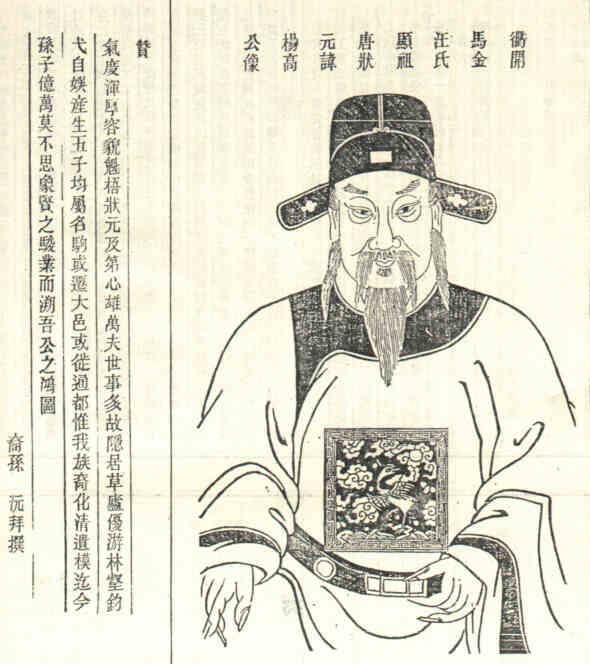 衢開
馬金
汪氏
顯祖
唐狀
元諱
楊高
公像
贊
氣度渾厚容貌魁梧狀元及第心雄萬夫世事多故隱居草廬優游林壑釣
弋自娛産生五子均屬名駒或遷大邑或徙通都惟我族裔化清遺模迄今
孫子億萬莫不思象賢之駿業而溯吾公之鴻圖
裔孫 沅拜撰